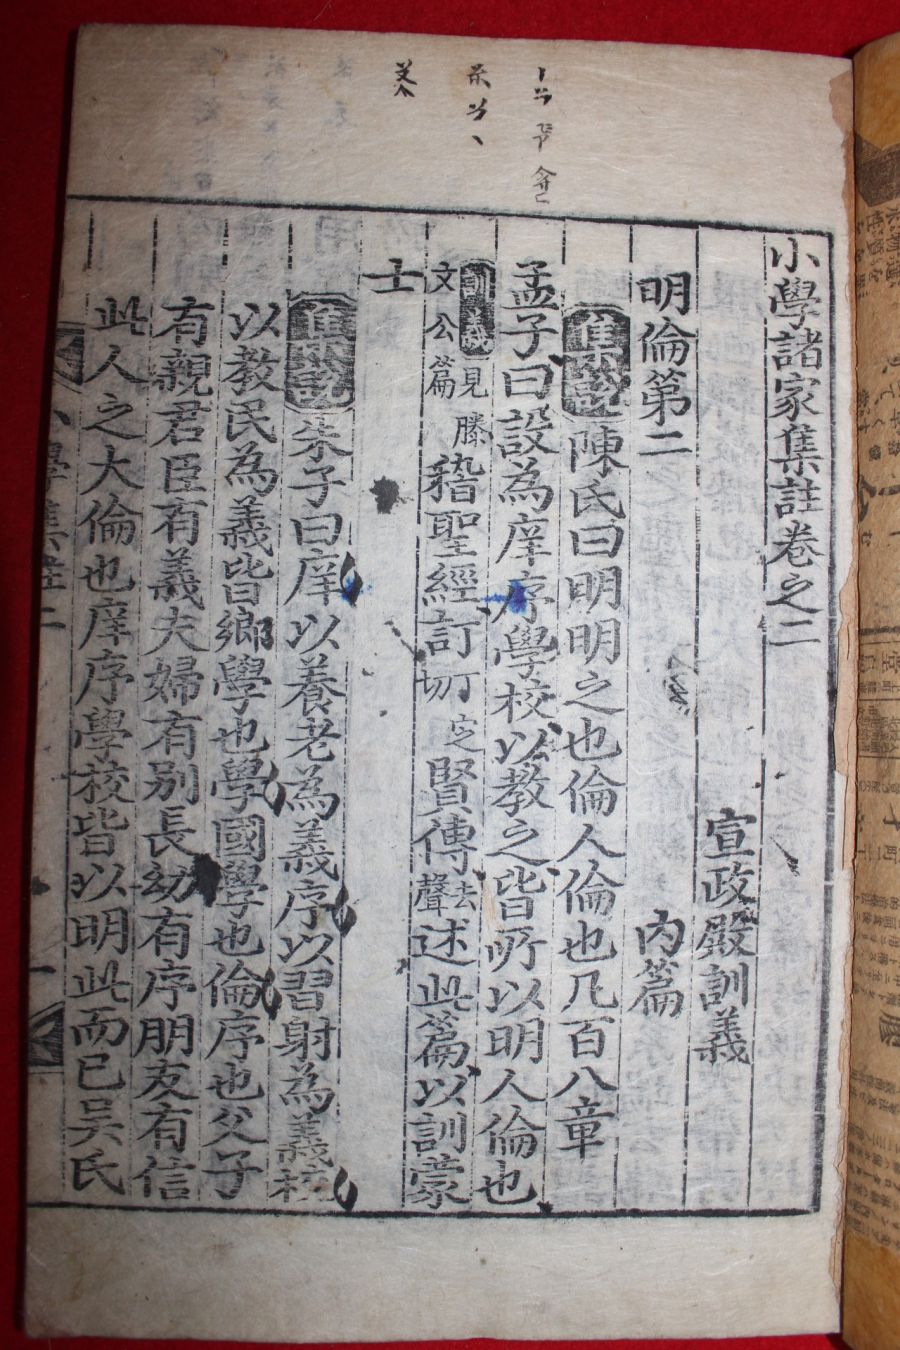 小學諸家集註卷之二
宣政殿訓義
明倫第二 內篇
集說陳氏曰明明之也倫人倫也凡百八章
孟子曰設為庠序學校以教之皆所以明人倫也
訓義見滕文公篇稽聖經訂切丁定賢傳去聲述此篇以訓蒙
士
集說朱子曰庠以養老為義序以習射為義校
以教民為義皆鄉學也學國學也倫序也父子
有親君臣有義夫婦有別長幼有序朋友有信
此人之大倫也庠序學校皆以明此而已吳氏
小學集註二
一